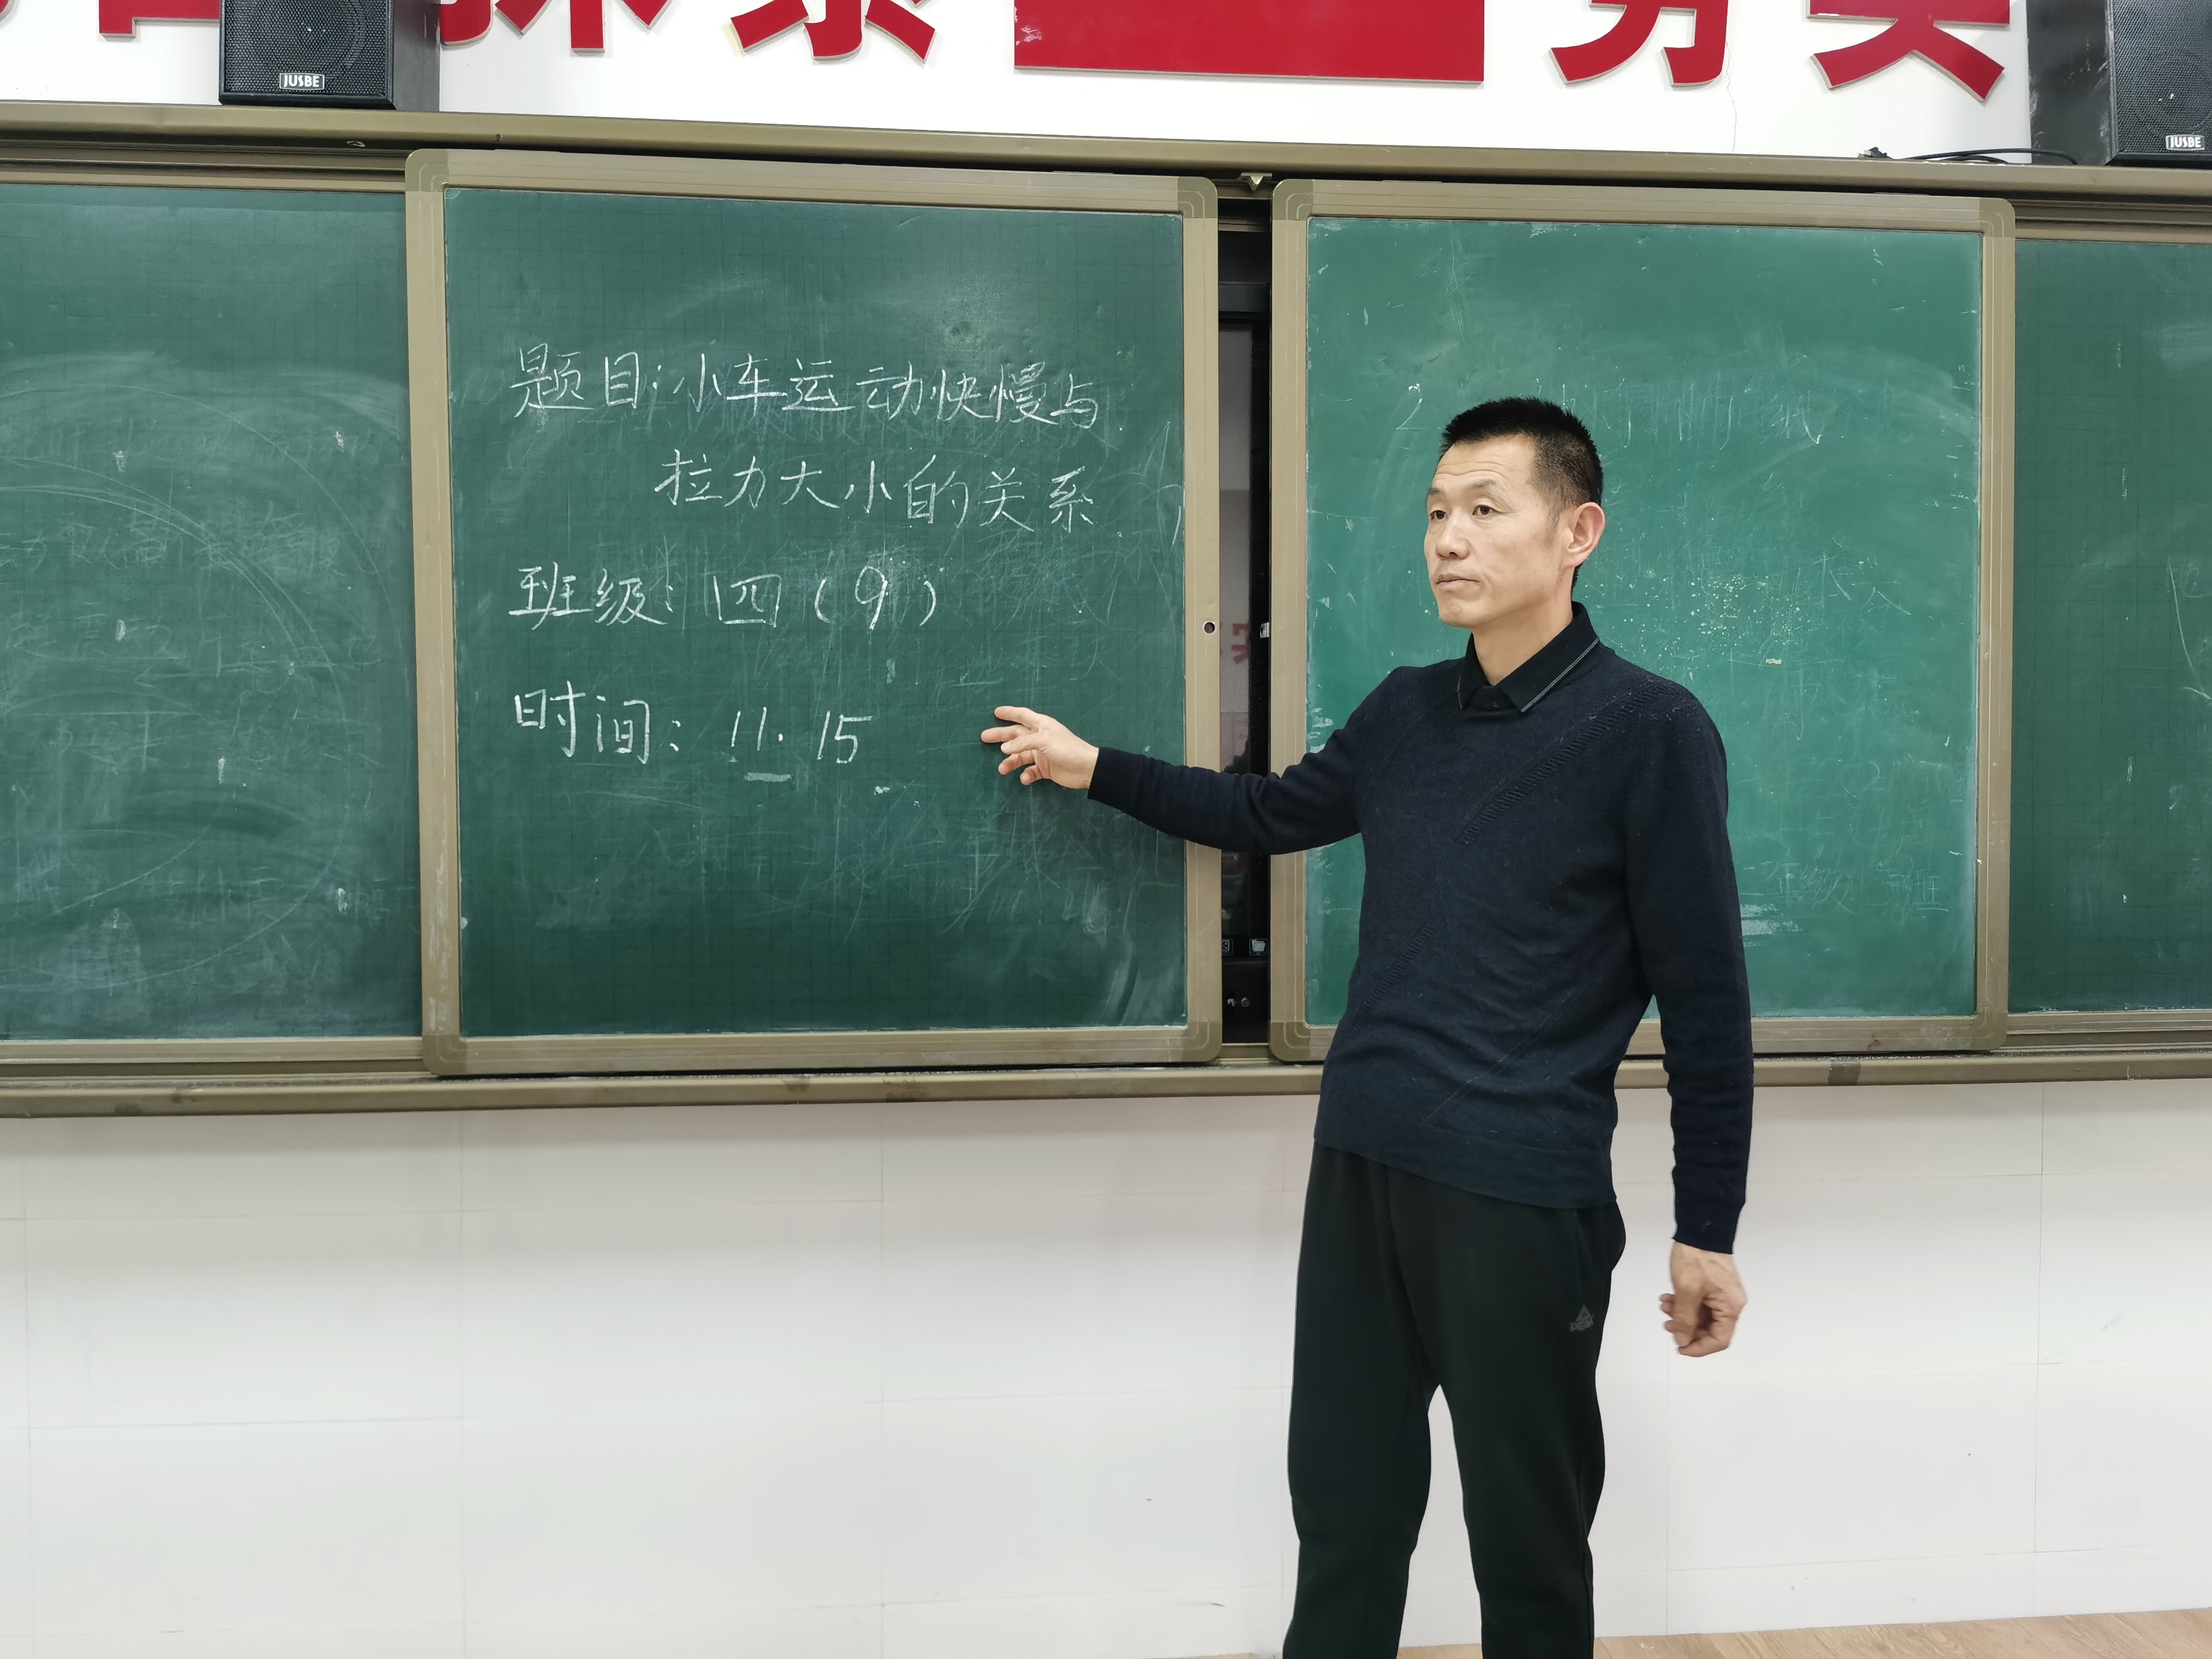 JUSBE
JUSBE
题目:小车运动快慢与
拉力大小的关系
班级:四(9)
时间:11.15
PEAK